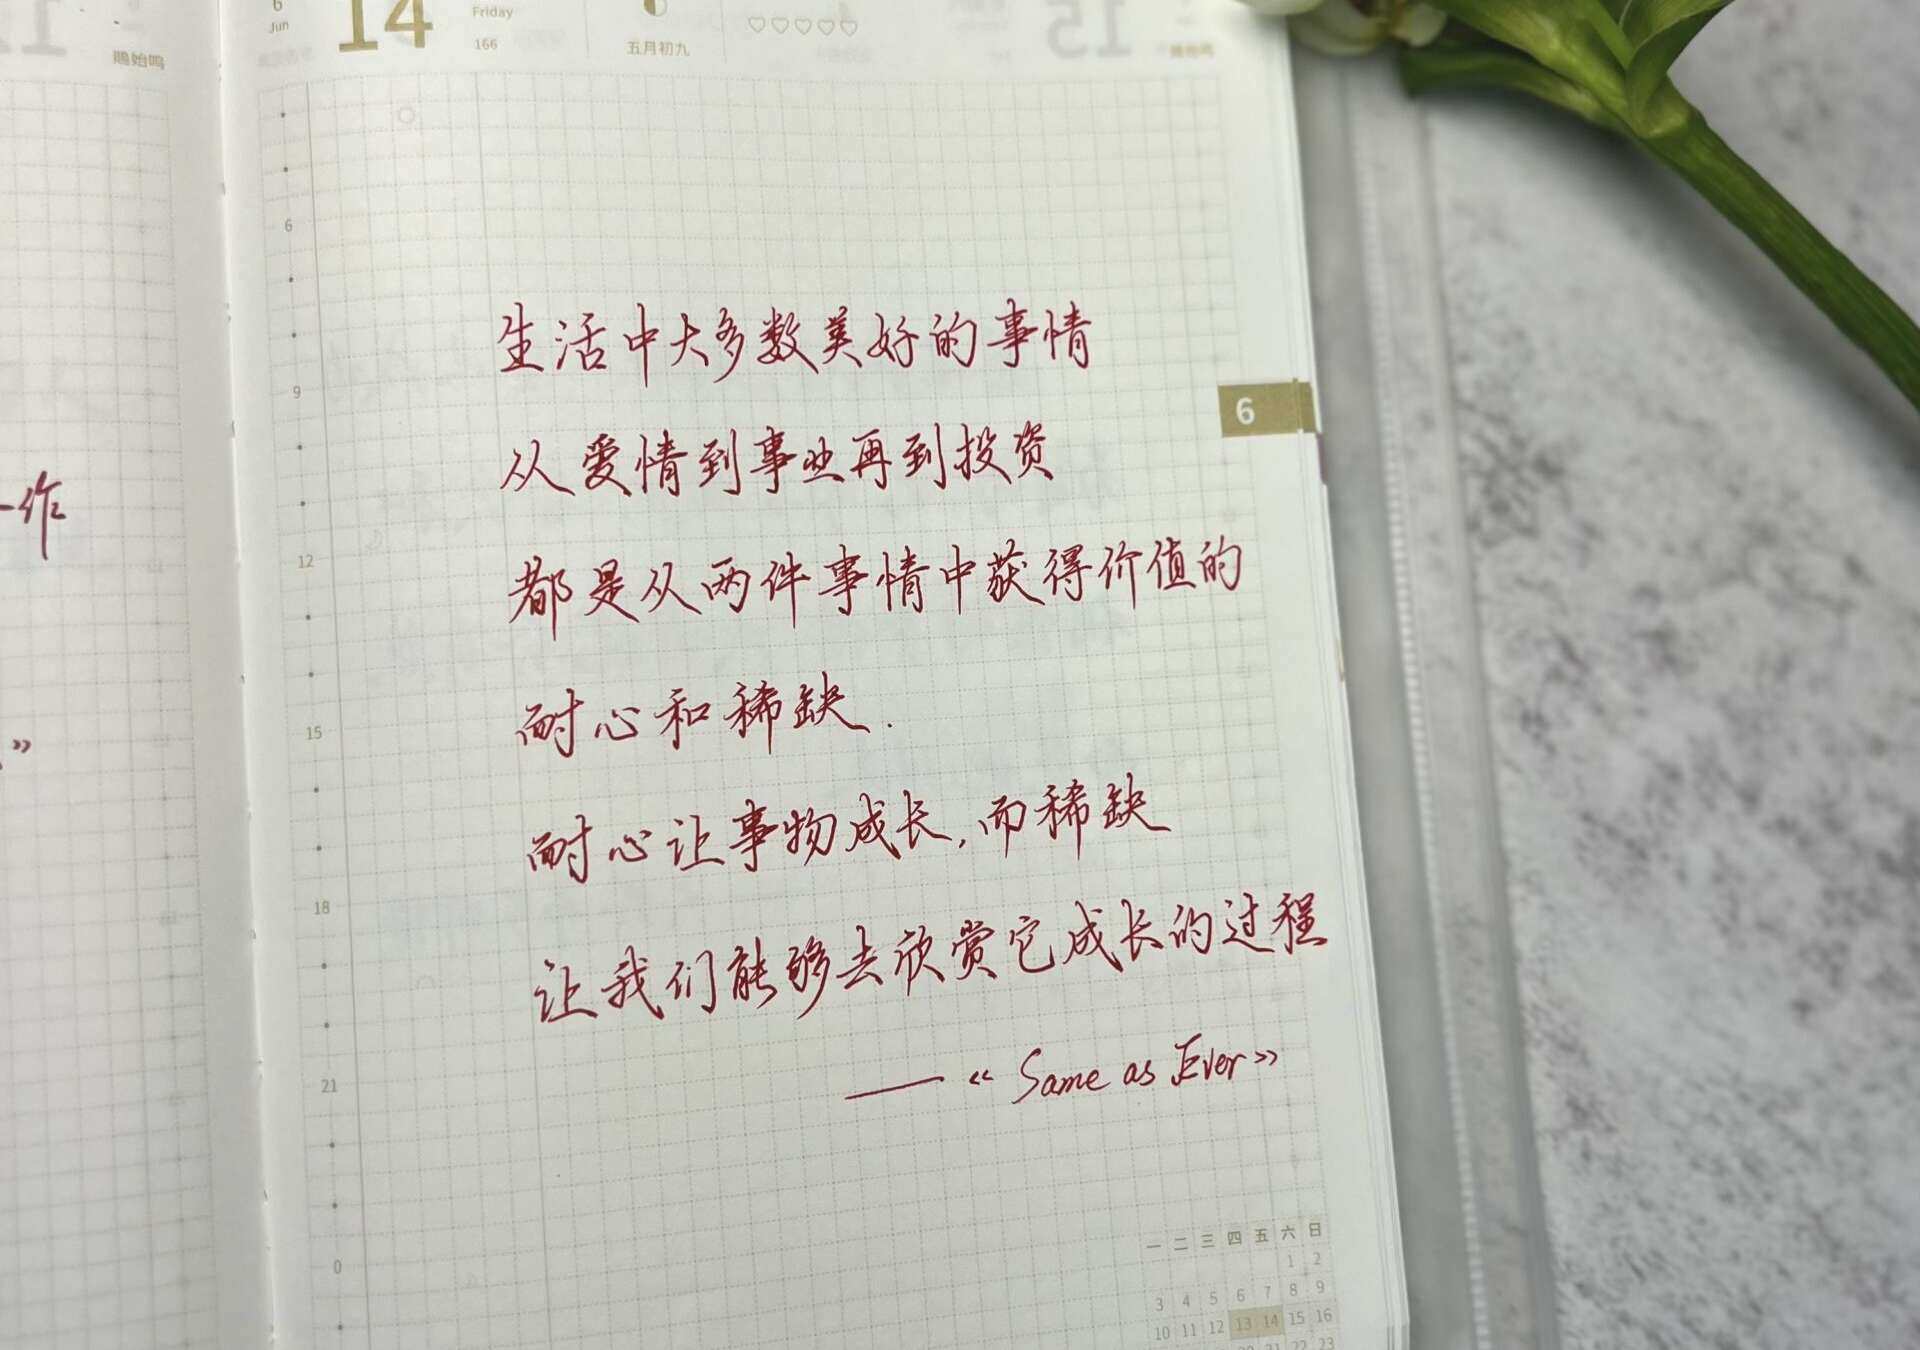 6
Jun
14
Friday
166
五月初九
鵙始鸣
6
9
12
15
18
21
0
作
”
生活中大多数美好的事情
从爱情到事业再到投资
都是从两件事情中获得价值的
耐心和稀缺.
耐心让事物成长,而稀缺
让我们能够去欣赏它成长的过程
——《Same as Ever》
6
一 二 三 四 五 六 日
1 2
3 4 5 6 7 8 9
10 11 12 13 14 15 16
22 23